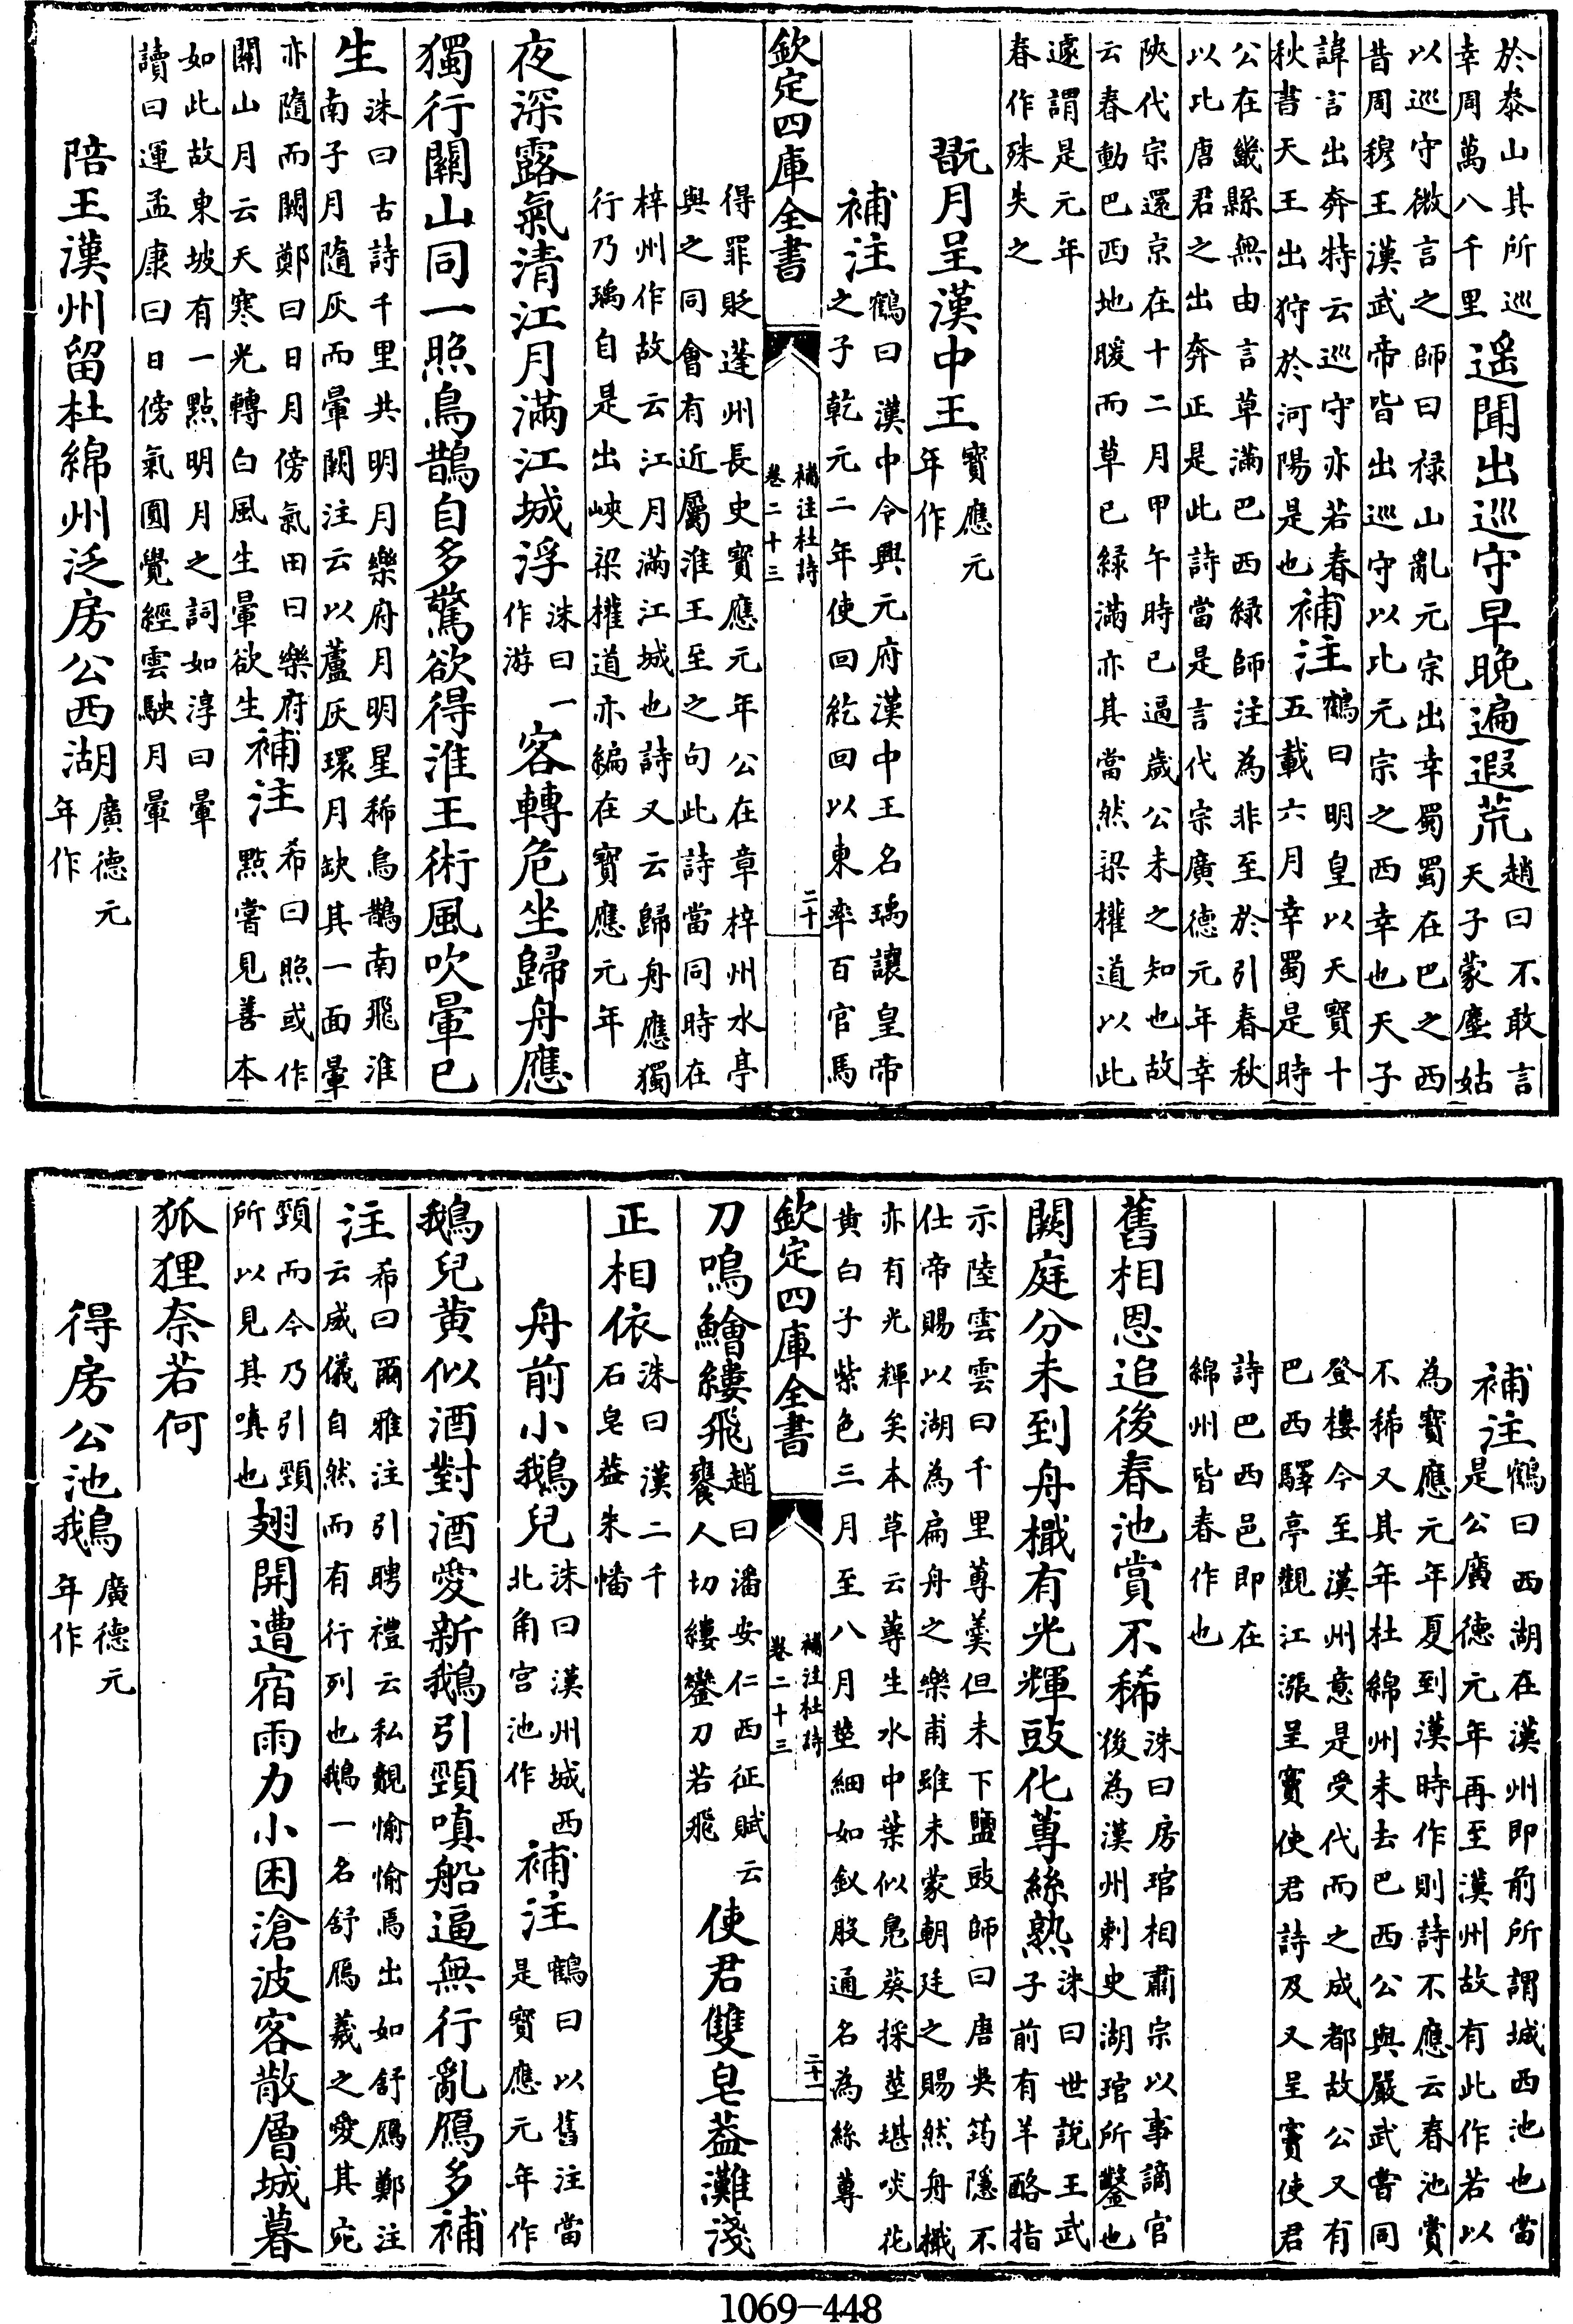 於泰山其所巡幸周萬八千里遥聞出巡守早晚遍遐荒趙曰不敢言天子蒙塵姑
以巡守微言之師曰禄山亂元宗出幸蜀蜀在巴之西
昔周穆王漢武帝皆出巡守以比元宗之西幸也天子
諱言出奔特云巡守亦若春秋書天王出狩於河陽是也補注鶴曰明皇以天寳十五載六月幸蜀是時
公在畿縣無由言草滿巴西緑師注為非至於引春秋
以比唐君之出奔正是此詩當是言代宗廣德元年幸
陜代宗還京在十二月甲午時已過歲公未之知也故
云春動巴西地暖而草已緑滿亦其當然梁權道以此
遽謂是元年
春作殊失之
翫月呈漢中王寳應元年作
補注鶴曰漢中令興元府漢中王名瑀讓皇帝之子乾元二年使回紇回以東率百官馬
欽定四庫全書 補注杜詩 卷二十三 二十
得罪貶蓬州長史寳應元年公在章梓州水亭
與之同會有近屬淮王至之句此詩當同時在
梓州作故云江月滿江城也詩又云歸舟應獨
行乃瑀自是出峽梁權道亦編在寳應元年
夜深露氣清江月滿江城浮洙曰一作游客轉危坐歸舟應
獨行關山同一照烏鵲自多驚欲得淮王術風吹暈已
生洙曰古詩千里共明月樂府月明星稀烏鵲南飛淮南子月隨灰而暈闕注云以蘆灰環月缺其一面暈
亦隨而闕鄭曰日月傍氣田曰樂府關山月云天寒光轉白風生暈欲生補注希曰照或作點嘗見善本
如此故東坡有一點明月之詞如淳曰暈
讀曰運孟康曰日傍氣圓覺經雲駛月暈
陪王漢州留杜綿州泛房公西湖廣德元年作
補注鶴曰西湖在漢州即前所謂城西池也當是公廣德元年再至漢州故有此作若以
為寳應元年夏到漢時作則詩不應云春池賞
不稀又其年杜綿州未去巴西公與嚴武嘗同
登樓今至漢州意是受代而之成都故公又有
巴西驛亭觀江漲呈竇使君詩及又呈竇使君
詩巴西邑即在
綿州皆春作也
舊相恩追後春池賞不稀洙曰房琯相肅宗以事謫官後為漢州刺史湖琯所鑿也
闕庭分未到舟檝有光輝豉化蓴絲熟洙曰世說王武子前有羊酪指
示陸雲雲曰千里蓴羹但未下鹽豉師曰唐吳筠隱不
仕帝賜以湖為扁舟之樂甫雖未蒙朝廷之賜然舟檝
亦有光輝矣本草云蓴生水中葉似鳬葵採莖堪啖花
黄白子紫色三月至八月莖細如釵股通名為絲蓴
欽定四庫全書 補注杜詩 卷二十三 二十一
刀鳴鱠縷飛趙曰潘安仁西征賦云饔人切縷鑾刀若飛使君雙皂葢灘淺
正相依洙曰漢二千石皂葢朱幡
舟前小鵝兒洙曰漢州城西北角官池作補注鶴曰以舊注當是寳應元年作
鵝兒黄似酒對酒愛新鵝引頸嗔船逼無行亂鴈多補
注希曰爾雅注引聘禮云私覿愉愉焉出如舒鴈鄭注云威儀自然而有行列也鵝一名舒鴈羲之愛其宛
頸而今乃引頸所以見其嗔也翅開遭宿雨力小困滄波客散層城暮
狐狸奈若何
得房公池鵝廣德元年作
1069-448